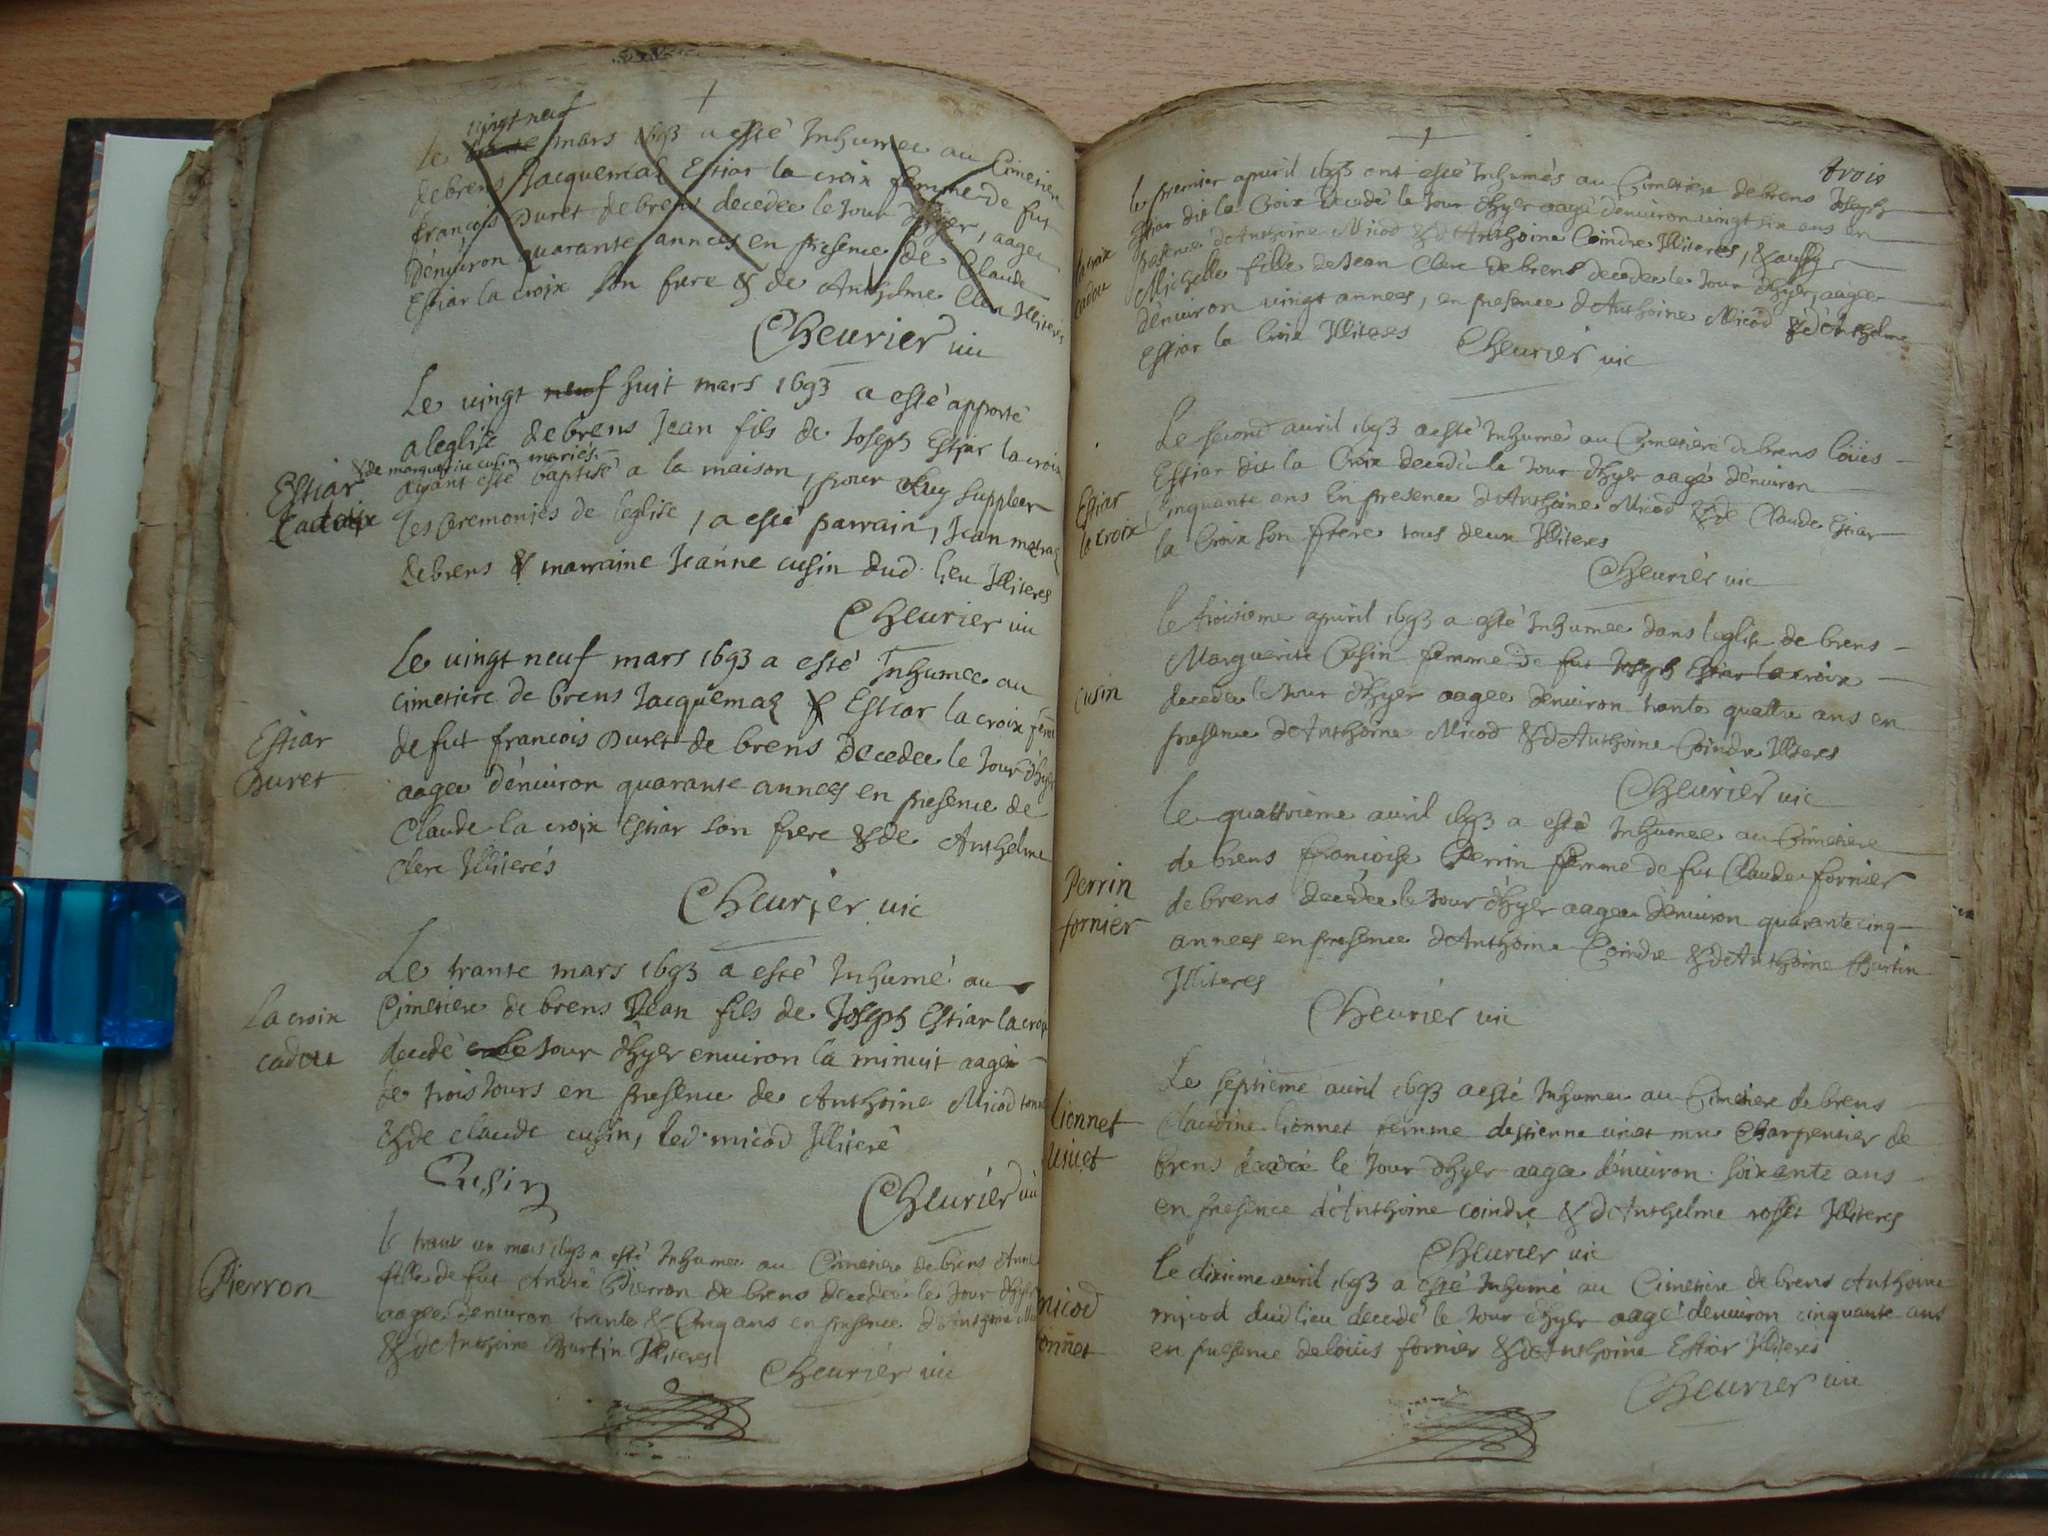 vingt neuf
le trante mars 1693 a esté Inhumee au Cimetiere
de brens Jacquemaz Estiar la croix femme de fut
françois Duret de brens decedee le Jour d'hyer, aagee
d'enuiron quarante annees en presence de Claude
Estiar la croix son frere & de Anthelme Clerc Illiterés
Cheurier uic
Le uingt neuf huit mars 1693 a esté apporté
a leglise de brens Jean fils de Joseph Estiar la croix
& de marguerite cusin mariés
ayant esté baptisé a la maison, pour luy suppleer
Estiar
Lacroix
les ceremonies de leglise, a esté parrain, Jean
de brens & marraine Jeanne cusin dud. lieu Illiteres
Cheurier uic
Le uingt neuf mars 1693 a esté Inhumee au
cimetiere de brens Jacquemaz Estiar la croix feme
Estiar
Duret
de fut francois Duret de brens Decedee le Jour d'hyer
aagee d'enuiron quarante annees en presence de
Claude la croix Estiar son frere & de Anthelme
Clerc Illiterés
Cheurier uic
Le trante mars 1693 a esté Inhumé au
La croix
cadou
Cimetiere de brens Jean fils de Joseph Estiar la croix
decedé le Jour d'hyer enuiron la minuit aagé
de trois Jours en presence de Anthoine Micod
& de claude cusin, led. micod Illiteré
Cusin
Cheurier uic
le trante un mars 1693 a esté Inhumee au Cimetiere de brens Anne
Pierron
fille de fut André Pierron de brens decedee le Jour d'hyer
aagee denuiron trante & Cinq ans en presence d'Anthoine
& d'Anthoine Burtin Illiteres
Cheurier uic
trois
le premier apuril 1693 ont esté Inhumés au Cimetiere de brens Joseph
Estiar dit la Croix decedé le Jour d'hyer aagé d'enuiron uingt six ans en
la croix
cadou
presence d'Anthoine Micod & d'Anthoine Coindre Illiteres, & aussy
Michelle fille de Jean Clerc de brens decedee le Jour d'hyer, aagee
d'enuiron uingt annees, en presence d'Anthoine Micod & d'Anthelme
Estiar la Croix Illiteres
Cheurier uic
Le second auril 1693 a esté Inhumé au Cimetiere de brens louis
Estiar
la croix
Estiar dit la Croix decedé le Jour d'hyer aagé d'enuiron
Cinquante ans En presence d'Anthoine Micod & de Claude Estiar
la Croix son frere tous deux Illiteres
Cheurier uic
le troisieme apuril 1693 a esté Inhumee dans leglise de brens
cusin
Marguerite Cusin femme de fut Joseph Estiar la croix
decedee le Jour d'hyer aagee denuiron trante quattre ans en
presence d'Anthoine Micod & d'Anthoine Coindre Illiteres
Cheurier uic
le quattrieme auril 1693 a esté Inhumee au Cimetiere
Perrin
fornier
de brens francoise Perrin femme de fut Claude fornier
de brens decedee le Jour d'hyer aagee d'enuiron quarante cinq
annees en presence d'Anthoine Coindre & d'Anthoine Burtin
Illiteres
Cheurier uic
Le septieme auril 1693 a esté Inhumee au Cimetiere de brens
Lionnet
Uiuet
Claudine lionnet femme destienne uiuet mre Charpentier de
brens decedee le Jour d'hyer aagee d'enuiron soixante ans
en presence d'Anthoine coindre & d'Anthelme rosset Illiteres
Cheurier uic
le dixieme auril 1693 a esté Inhumé au Cimetiere de brens Anthoine
micod
micod dud lieu decedé le Jour d'hyer aagé denuiron cinquante ans
en presence de louis fornier & d'Anthoine Estiar Illiteres
Cheurier uic